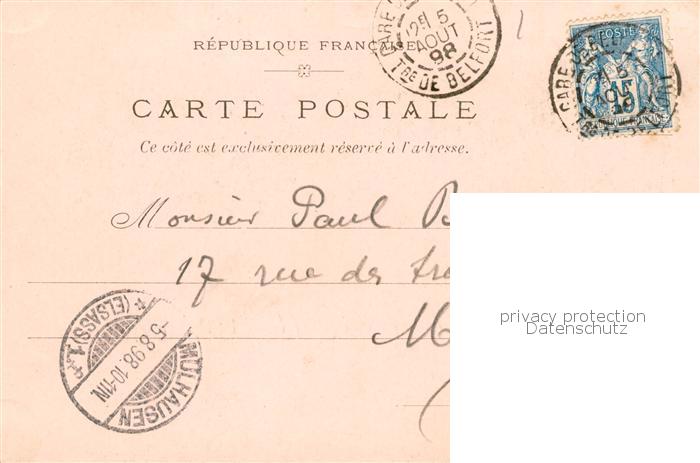 RÉPUBLIQUE FRANÇAISE
CARTE POSTALE
Ce côté est exclusivement réservé à l'adresse.
GARE
5
AOUT
98
TRE DE BELFORT
POSTE
15
GARE
Monsieur Paul B
17 rue des
M
MÜLHAUSEN
(ELSASS) 1.
-5.8.98.10-11N.
privacy protection
Datenschutz